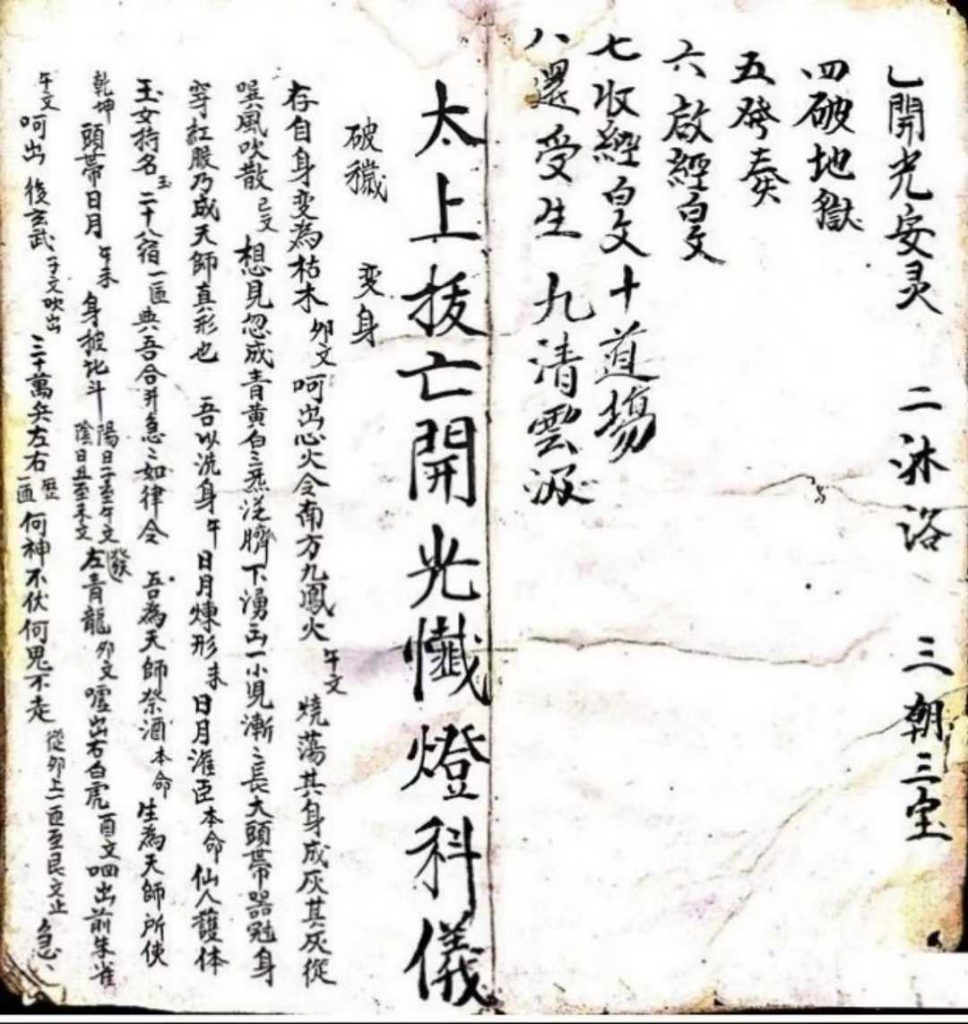 乚開光安灵　二沐浴　三朝三宝
四破地獄
五發奏
六啟經白文
七收經白文　十道場
八還受生　九清雲派
太上拔亡開光懺燈科儀
破穢　变身
存自身变為枯木　卯文　呵出心火令南方九鳳火　午文　燒荡其身成灰其灰從
巽風吹散　己文　想見忽成青黄白三炁從臍下湧出一小児漸〻長大頭帶器冠身
穿紅服乃成天師真形也　吾以洗身　午　日月煉形　未　日月濯臣本命仙人護体
玉女持名　玉　二十八宿一匝與吾合并急〻如律令　吾為天師祭酒本命　生為天師所使
乾坤　頭帶日月　午未　身披北斗　陽日子至午文　陰日丑至未文　發　左青龍　卯文　嘘出右白虎　酉文　呬出前朱雀
午文　呵出　後玄武　子文吹出　三十萬兵左右一匝　歷　何神不伏何鬼不走　從卯上一匝至艮文止　急〻